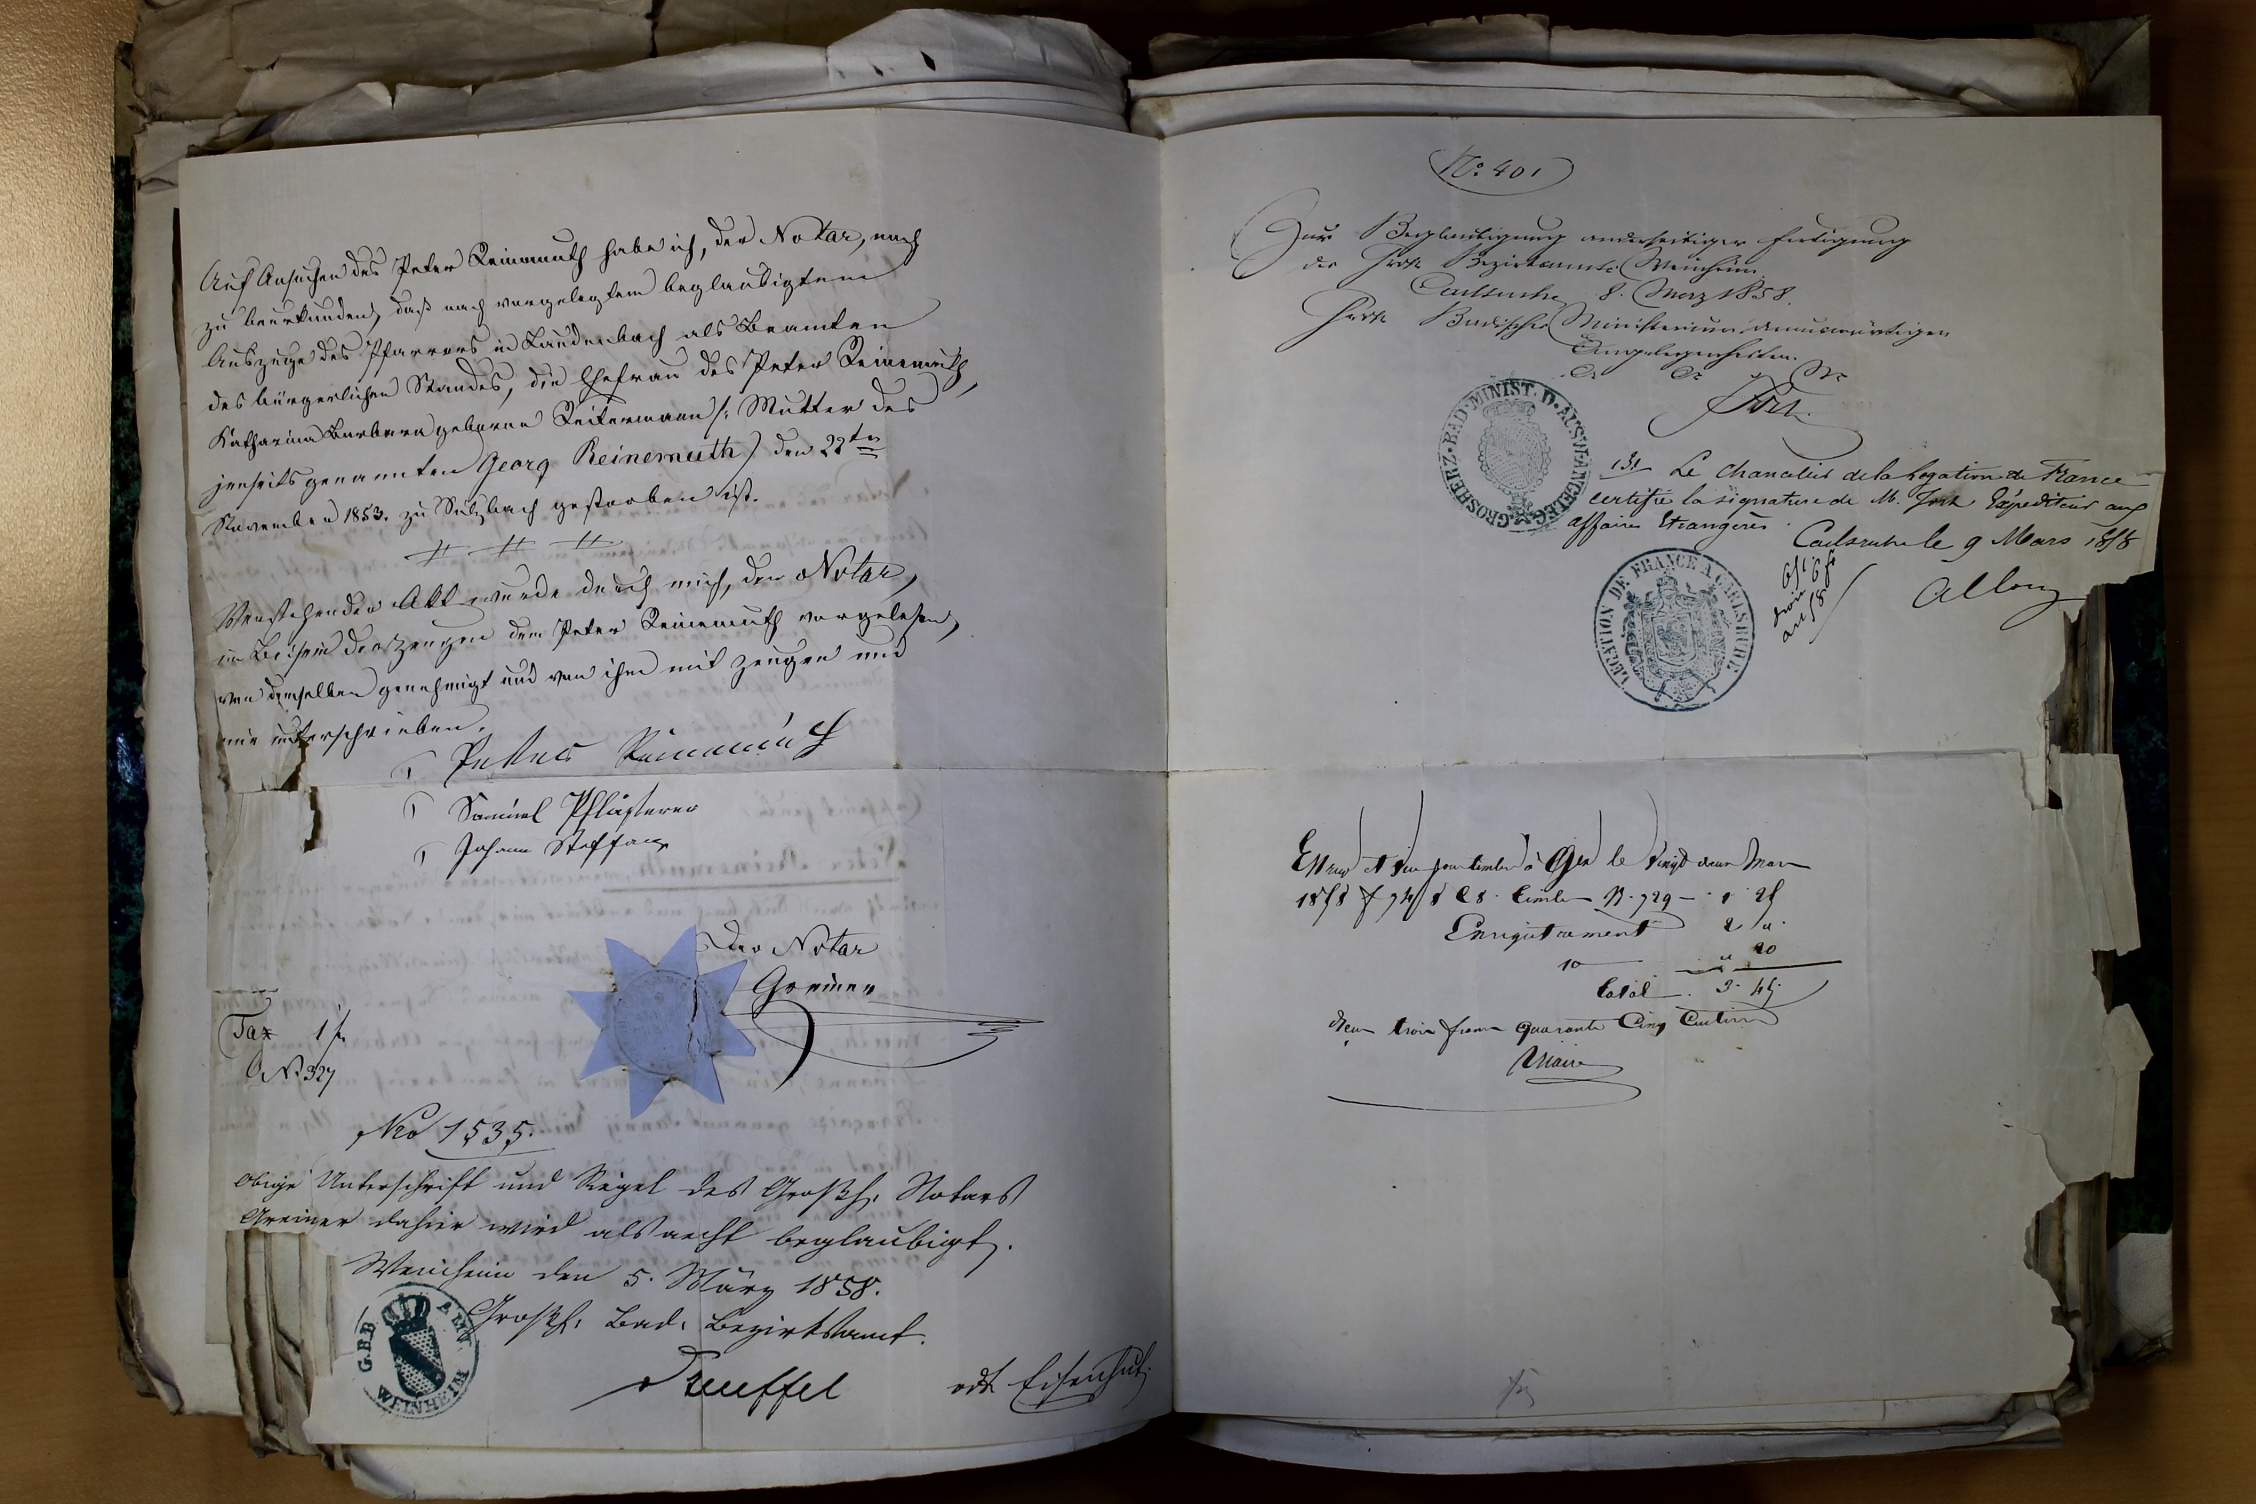 Auf Ansuchen des Peter Reinemuth habe ich, der Notar, noch
zu beurkunden, daß nach vorgelegtem beglaubigtem
Auszuge des Pfarrers in Laudenbach als Beamten
des bürgerlichen Standes, die Ehefrau des Peter Reinemuth,
Katharina Barbara geborne Reitermann /: Mutter des
jenseits genannten Georg Reinemuth) den 22ten
November 1853. zu Sulzbach gestorben ist.
Vorstehender Akt wurde durch mich, den Notar,
im Beisein der Zeugen dem Peter Reinemuth vorgelesen,
von demselben genehmigt und von ihm mit Zeugen und
mir unterschrieben.
Peter Reinemuth
Samuel Pflästerer
Johann Steffan
Der Notar
Greiner
Tax 1 f
No 327
No 1535.
Obige Unterschrift und Siegel des Großh. Notars
Greiner dahier wird als aecht beglaubigt.
Weinheim den 5. März 1858.
Großh. Bad. Bezirksamt.
Teuffel
vdt Eisenhut.
G.B.B. AMT. WEINHEIM
No. 401
Zur Beglaubigung anderseitiger Fertigung
des Großh. Bezirksamts Weinheim.
Carlsruhe 8. März 1858.
Großh. Badisches Ministerium der auswärtigen
Angelegenheiten.
GROSHERZ. BAD. MINIST. D. AUSW. ANGELEG.
131 Le Chancelier de la Légation de France
certifie la signature de M. Expéditeur aux
affaires Etrangères.
Carlsruhe le 9 Mars 1858
LEGATION DE FRANCE A CARLSRUHE
Allony
à Gex le vingt deux Mars
1858 f 74 C 8. Timbre N. 729 - 1 25
Enregistrement 2 "
10 " 20
Total 3. 45
Reçu trois francs quarante Cinq Centimes